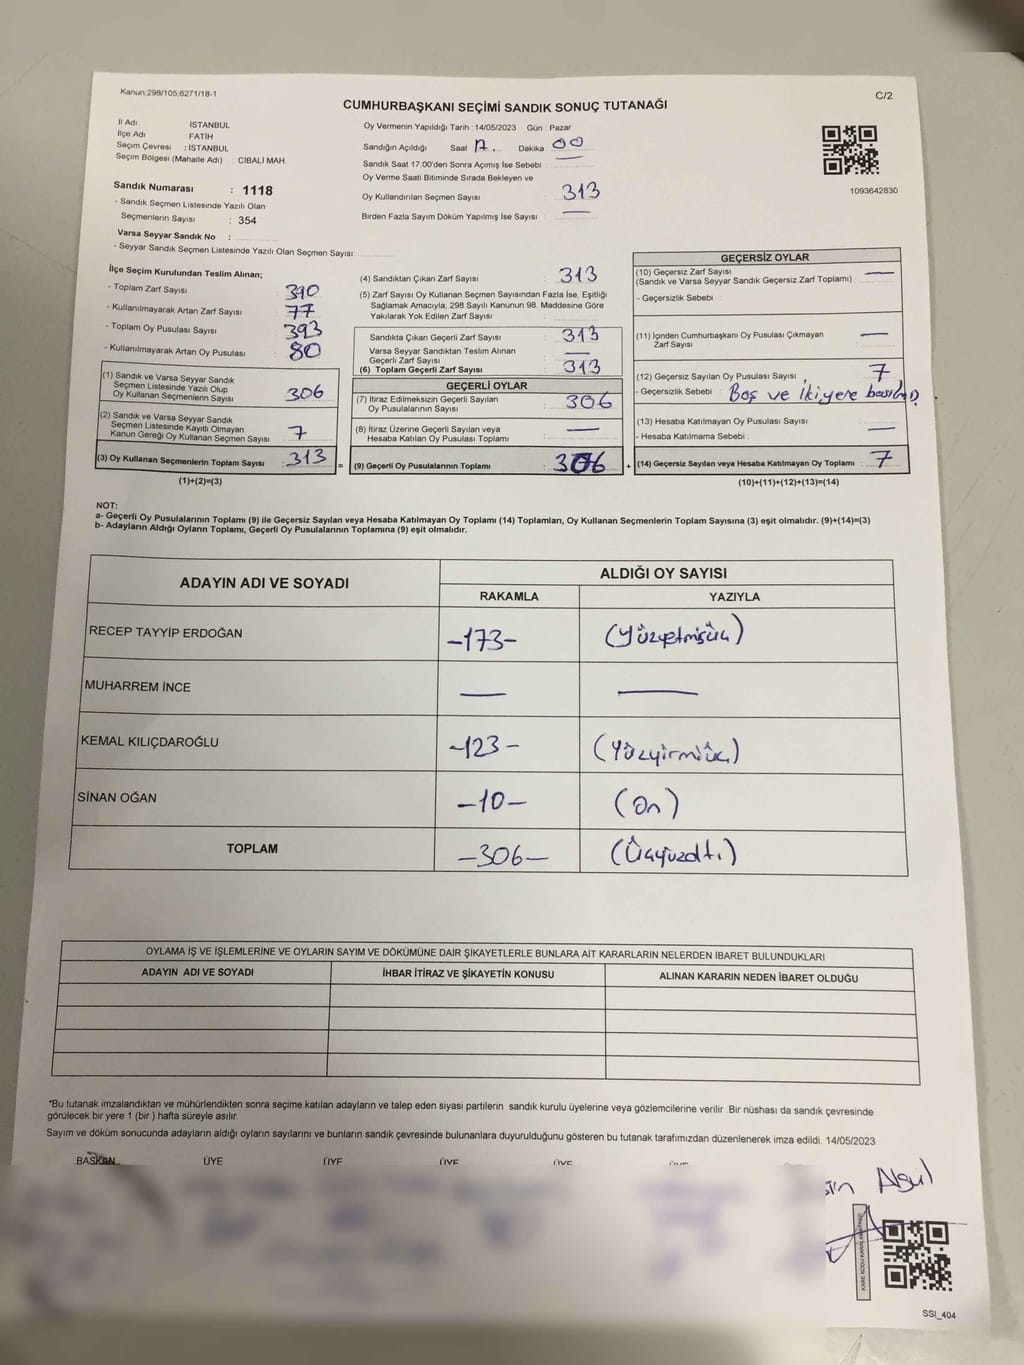 Kanun;298/105,6271/18-1
C/2
CUMHURBAŞKANI SEÇİMİ SANDIK SONUÇ TUTANAĞI
İl Adı İSTANBUL
İlçe Adı FATİH
Seçim Çevresi : İSTANBUL
Seçim Bölgesi (Mahalle Adı) : CİBALİ MAH.
Sandık Numarası : 1118
- Sandık Seçmen Listesinde Yazılı Olan
Seçmenlerin Sayısı : 354
Varsa Seyyar Sandık No :
- Seyyar Sandık Seçmen Listesinde Yazılı Olan Seçmen Sayısı
Oy Vermenin Yapıldığı Tarih : 14/05/2023 Gün : Pazar
Sandığın Açıldığı Saat 17. Dakika 00
Sandık Saat 17.00'den Sonra Açımış İse Sebebi —
Oy Verme Saati Bitiminde Sırada Bekleyen ve
Oy Kullandırılan Seçmen Sayısı 313
Birden Fazla Sayım Döküm Yapılmış İse Sayısı —
1093642830
İlçe Seçim Kurulundan Teslim Alınan;
- Toplam Zarf Sayısı 390
- Kullanılmayarak Artan Zarf Sayısı 77
- Toplam Oy Pusulası Sayısı 393
- Kullanılmayarak Artan Oy Pusulası 80
(1) Sandık ve Varsa Seyyar Sandık
Seçmen Listesinde Yazılı Olup
Oy Kullanan Seçmenlerin Sayısı 306
(2) Sandık ve Varsa Seyyar Sandık
Seçmen Listesinde Kayıtlı Olmayan
Kanun Gereği Oy Kullanan Seçmen Sayısı 7
(3) Oy Kullanan Seçmenlerin Toplam Sayısı : 313
(1)+(2)=(3)
(4) Sandıktan Çıkan Zarf Sayısı : 313
(5) Zarf Sayısı Oy Kullanan Seçmen Sayısından Fazla İse, Eşitliği
Sağlamak Amacıyla; 298 Sayılı Kanunun 98. Maddesine Göre
Yakılarak Yok Edilen Zarf Sayısı
Sandıkta Çıkan Geçerli Zarf Sayısı : 313
Varsa Seyyar Sandıktan Teslim Alınan
Geçerli Zarf Sayısı —
(6) Toplam Geçerli Zarf Sayısı : 313
GEÇERLİ OYLAR
(7) İtiraz Edilmeksizin Geçerli Sayılan
Oy Pusulalarının Sayısı : 306
(8) İtiraz Üzerine Geçerli Sayılan veya
Hesaba Katılan Oy Pusulası Toplamı —
= (9) Geçerli Oy Pusulalarının Toplamı : 306
GEÇERSİZ OYLAR
(10) Geçersiz Zarf Sayısı —
(Sandık ve Varsa Seyyar Sandık Geçersiz Zarf Toplamı)
- Geçersizlik Sebebi :
(11) İçinden Cumhurbaşkanı Oy Pusulası Çıkmayan
Zarf Sayısı —
(12) Geçersiz Sayılan Oy Pusulası Sayısı 7
- Geçersizlik Sebebi : Boş ve ikiyere
(13) Hesaba Katılmayan Oy Pusulası Sayısı —
- Hesaba Katılmama Sebebi :
+ (14) Geçersiz Sayılan veya Hesaba Katılmayan Oy Toplamı : 7
(10)+(11)+(12)+(13)=(14)
NOT:
a- Geçerli Oy Pusulalarının Toplamı (9) ile Geçersiz Sayılan veya Hesaba Katılmayan Oy Toplamı (14) Toplamları, Oy Kullanan Seçmenlerin Toplam Sayısına (3) eşit olmalıdır. (9)+(14)=(3)
b- Adayların Aldığı Oyların Toplamı, Geçerli Oy Pusulalarının Toplamına (9) eşit olmalıdır.
ADAYIN ADI VE SOYADI ALDIĞI OY SAYISI
RAKAMLA YAZIYLA
RECEP TAYYİP ERDOĞAN -173- (Yüzyetmişüç)
MUHARREM İNCE — —
KEMAL KILIÇDAROĞLU -123- (Yüzyirmiüç)
SİNAN OĞAN -10- (On)
TOPLAM -306- (Üçyüzaltı)
OYLAMA İŞ VE İŞLEMLERİNE VE OYLARIN SAYIM VE DÖKÜMÜNE DAİR ŞİKAYETLERLE BUNLARA AİT KARARLARIN NELERDEN İBARET BULUNDUKLARI
ADAYIN ADI VE SOYADI İHBAR İTİRAZ VE ŞİKAYETİN KONUSU ALINAN KARARIN NEDEN İBARET OLDUĞU
*Bu tutanak imzalandıktan ve mühürlendikten sonra seçime katılan adayların ve talep eden siyasi partilerin sandık kurulu üyelerine veya gözlemcilerine verilir. Bir nüshası da sandık çevresinde
görülecek bir yere 1 (bir) hafta süreyle asılır.
Sayım ve döküm sonucunda adayların aldığı oyların sayılarını ve bunların sandık çevresinde bulunanlara duyurulduğunu gösteren bu tutanak tarafımızdan düzenlenerek imza edildi. 14/05/2023
BAŞKAN ÜYE ÜYE ÜYE ÜYE
SSI_404